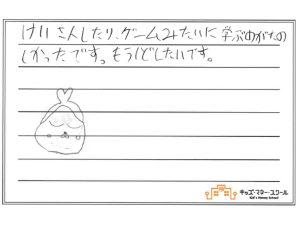 けいさんしたり、ゲームみたいに学ぶのがたの
しかったです。もう1どしたいです。
キッズ・マネー・スクール
Kid's Money School